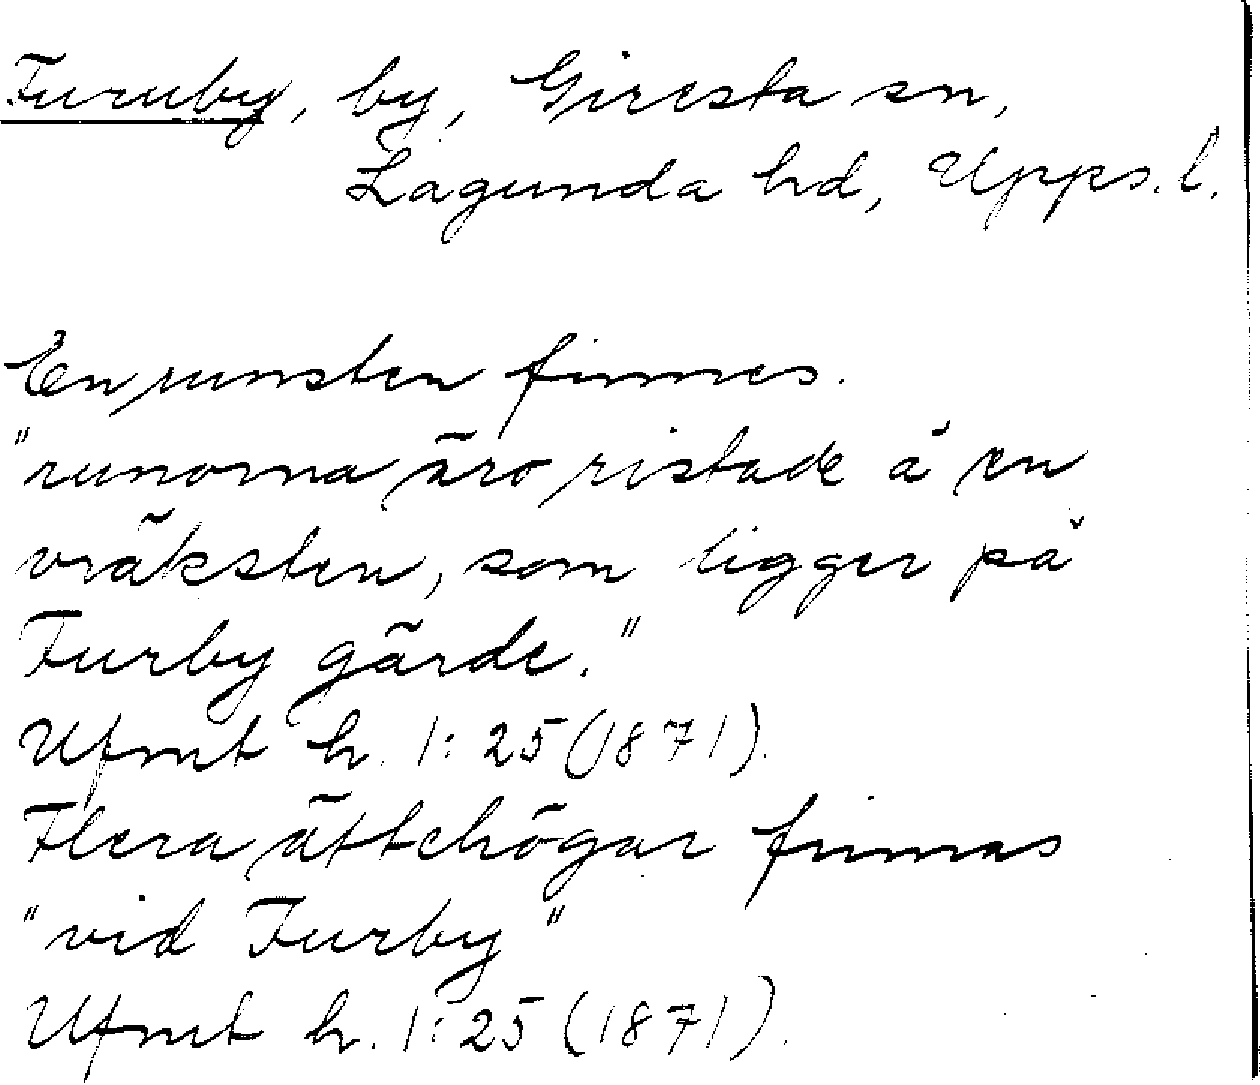 Furuby, by, Giresta sn,
Lagunda hd, Upps. l.
En runsten finnes.
"runorna äro ristade å en
vräksten, som ligger på
Furby gärde."
Ufmt h. 1:25 (1871).
Flera ättehögar finnas
"vid Furby"
Ufmt h. 1:25 (1871).